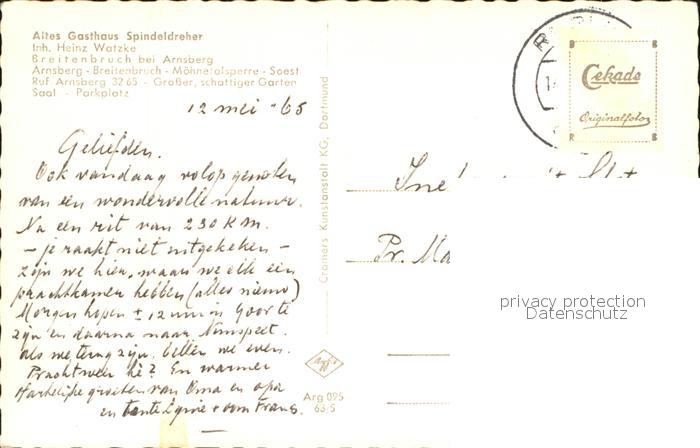 Altes Gasthaus Spindeldreher
Inh. Heinz Watzke
Breitenbruch bei Arnsberg
Arnsberg - Breitenbruch - Möhnetalsperre - Soest
Ruf Arnsberg 3265 - Großer, schattiger Garten
Saal - Parkplatz
12 mei -'65
Geliefden.
Ook vandaag volop genoten
van een wondervolle natuur.
Na een rit van 230 Km.
- je raakt niet uitgekeken -
zijn we hier, waar we elk een
prachtkamer hebben (alles nieuw)
Morgen hopen ± 12 uur in Goor te
zijn en daarna naar Nunspeet.
Als we terug zijn bellen we even.
Prachtweer hè? En warme
Hartelijke groeten van Oma en opa
en tante + oom Frans.
Cramers Kunstanstalt KG, Dortmund
Agfa
Arg 095
63/5
B B
Cekade
Originalfoto
R B
Pr. Ma
privacy protection
Datenschutz